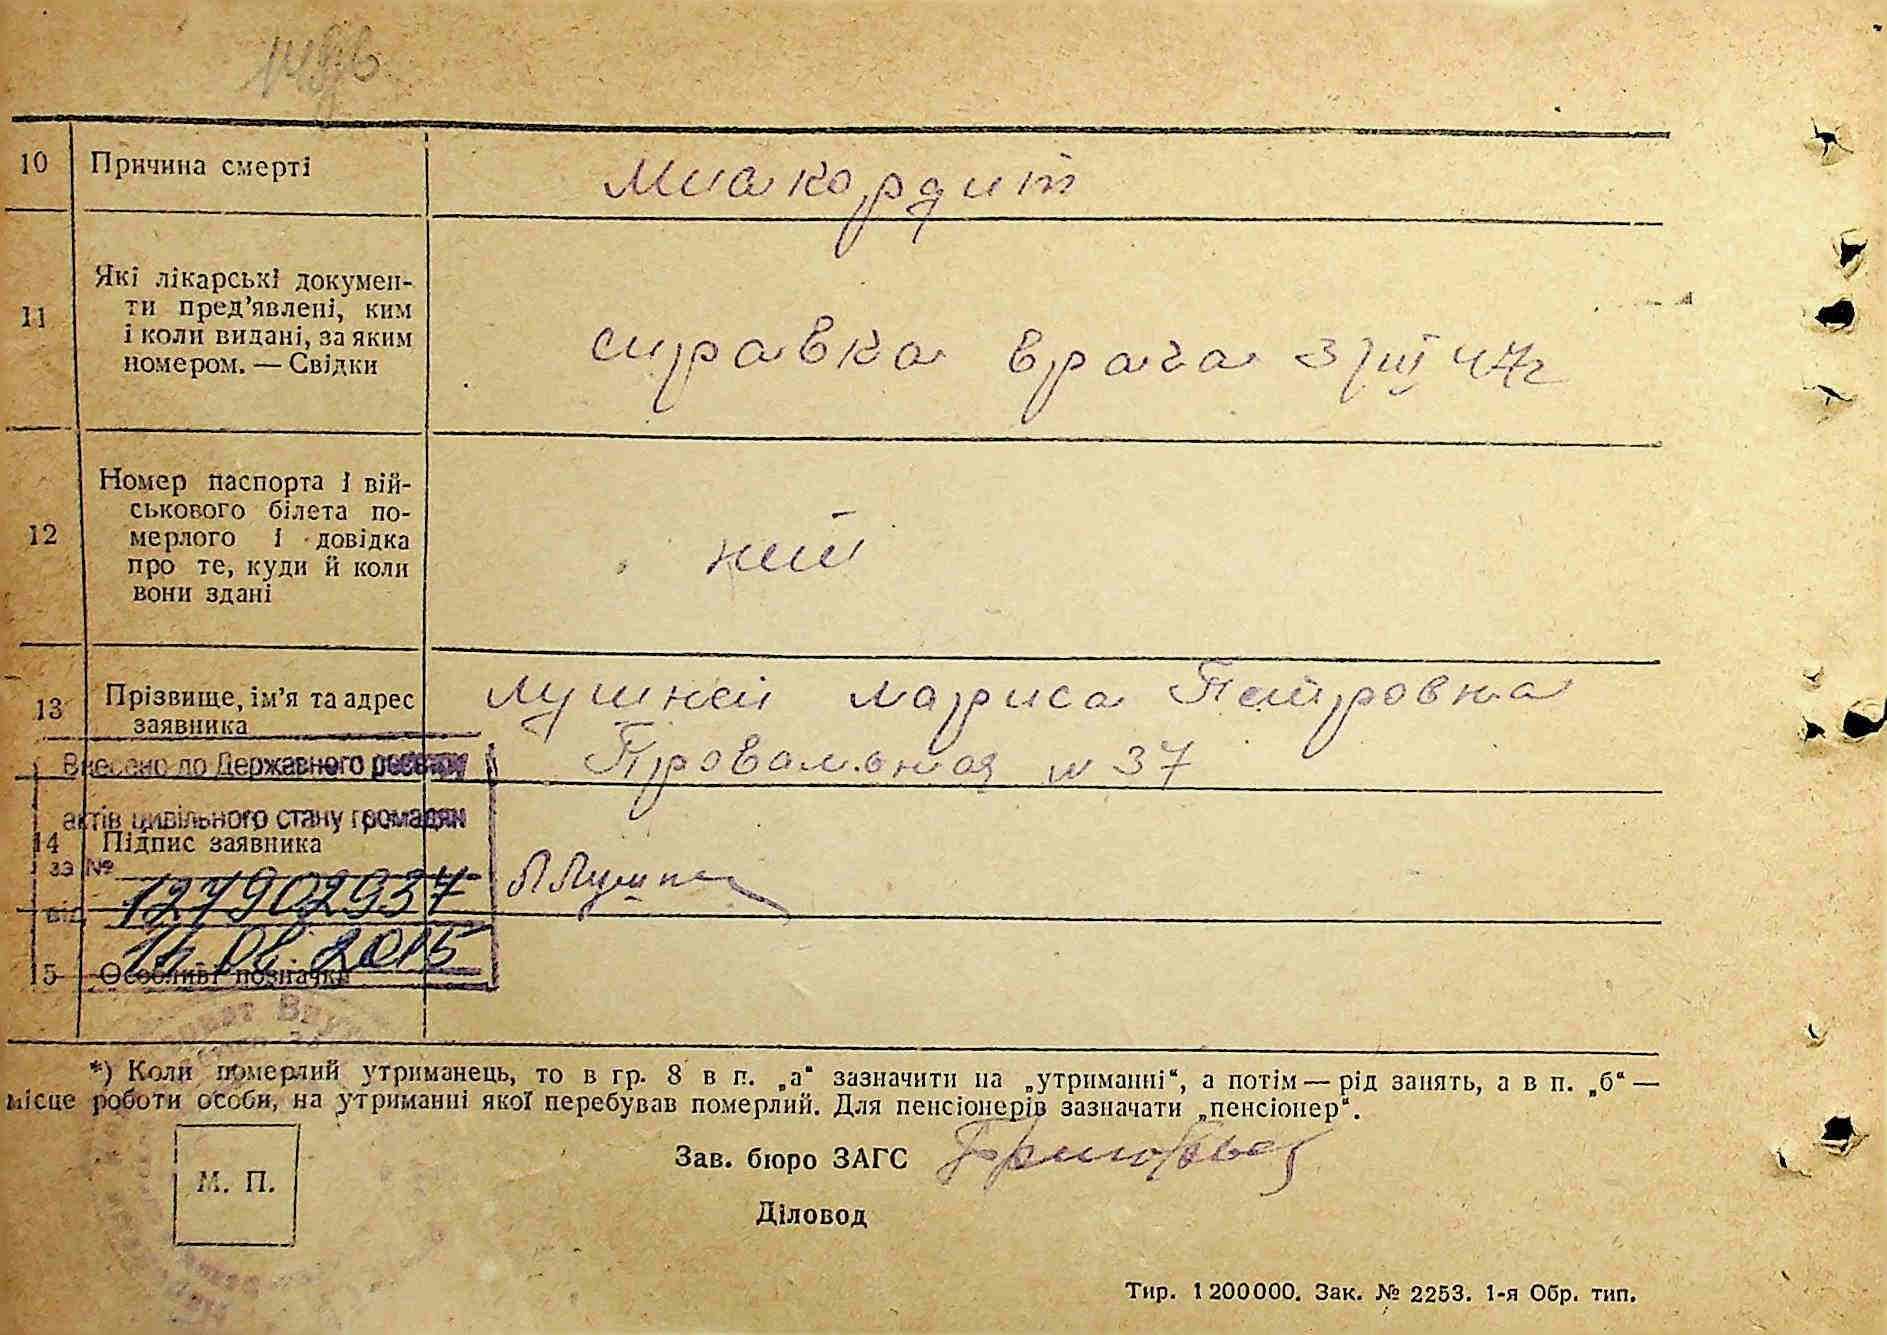 10 Причина смерті
Миакордит
11 Які лікарські докумен-
ти пред’явлені, ким
і коли видані, за яким
номером. — Свідки
справка врача 3/III 47г
12 Номер паспорта і вій-
ськового білета по-
мерлого і довідка
про те, куди й коли
вони здані
нит
13 Прізвище, ім’я та адрес
заявника
Лушней Лариса Петровна
Провальная № 37
Внесено до Державного реєстру
актів цивільного стану громадян
14 Підпис заявника
за №
127902937
від
2015
15 Особливі позначки
*) Коли померлий утриманець, то в гр. 8 в п. „а“ зазначити на „утриманні“, а потім — рід занять, а в п. „б“ —
місце роботи особи, на утриманні якої перебував померлий. Для пенсіонерів зазначати „пенсіонер“.
Зав. бюро ЗАГС
М. П.
Діловод
Тир. 1200000. Зак. № 2253. 1-я Обр. тип.